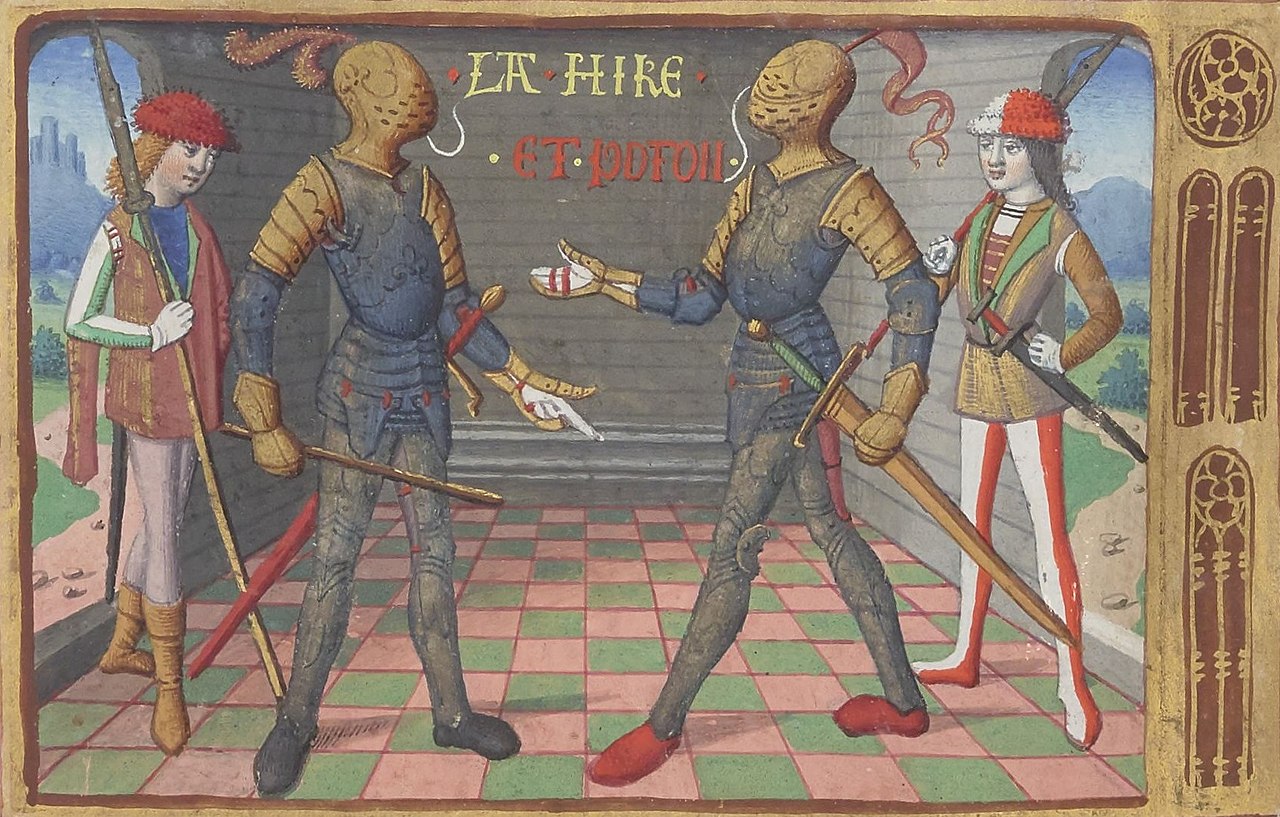 · LA · HIRE ·
· ET · POTON ·